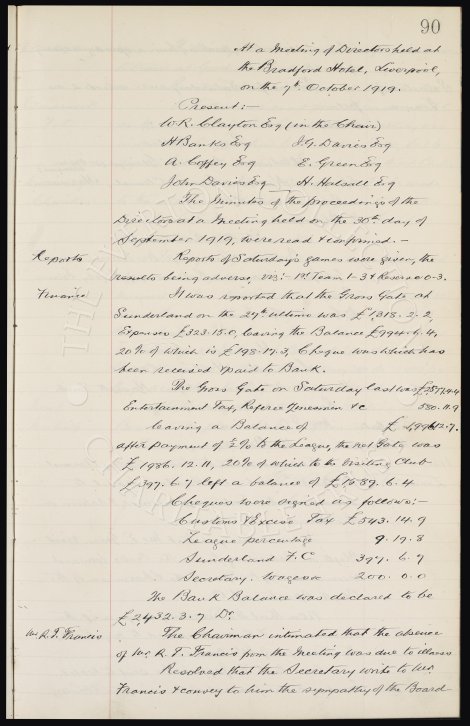 90
At a Meeting of Directors held at
the Bradford Hotel, Liverpool,
on the 7th October 1919.
Present:-
W.R. Clayton Esq (in the Chair)
H Banks Esq J.G. Davies Esq
A. Coffey Esq E. Green Esq
John Davies Esq H. Halsall Esq
The Minutes of the proceedings of the
Directors at a Meeting held on the 30th day of
September 1919, were read & confirmed. -
Reports Reports of Saturday's games were given, the
results being adverse, viz:- 1st Team 1-3 & Reserve 0-3.
Finance It was reported that the Gross Gate at
Sunderland on the 27th ultimo was £1318. 2. 2,
Expenses £323.18.0, leaving the Balance £994. 4. 4,
20% of which is £198.17.3, Cheque was which has
been received & paid to Bank.
The Gross Gate on Saturday last was
Entertainment Tax, Referee Linesmen &c 580. 11. 9
leaving a Balance of £
after payment of ½% to the League, the net Gate was
£1986. 12. 11, 20% of which to the Visiting Club
£397. 6. 7 left a balance of £1589. 6. 4
Cheques were signed as follows:-
Customs & Excise Tax £543. 14. 9
League percentage 9. 19. 8
Sunderland F.C 397. 6. 7
Secretary. Wages &c 200. 0. 0
The Bank Balance was declared to be
£2432. 3. 7 Dr.
Mr R. T. Francis The Chairman intimated that the absence
of Mr. R. T. Francis from the Meeting was due to illness
Resolved that the Secretary write to Mr.
Francis & convey to him the sympathy of the Board